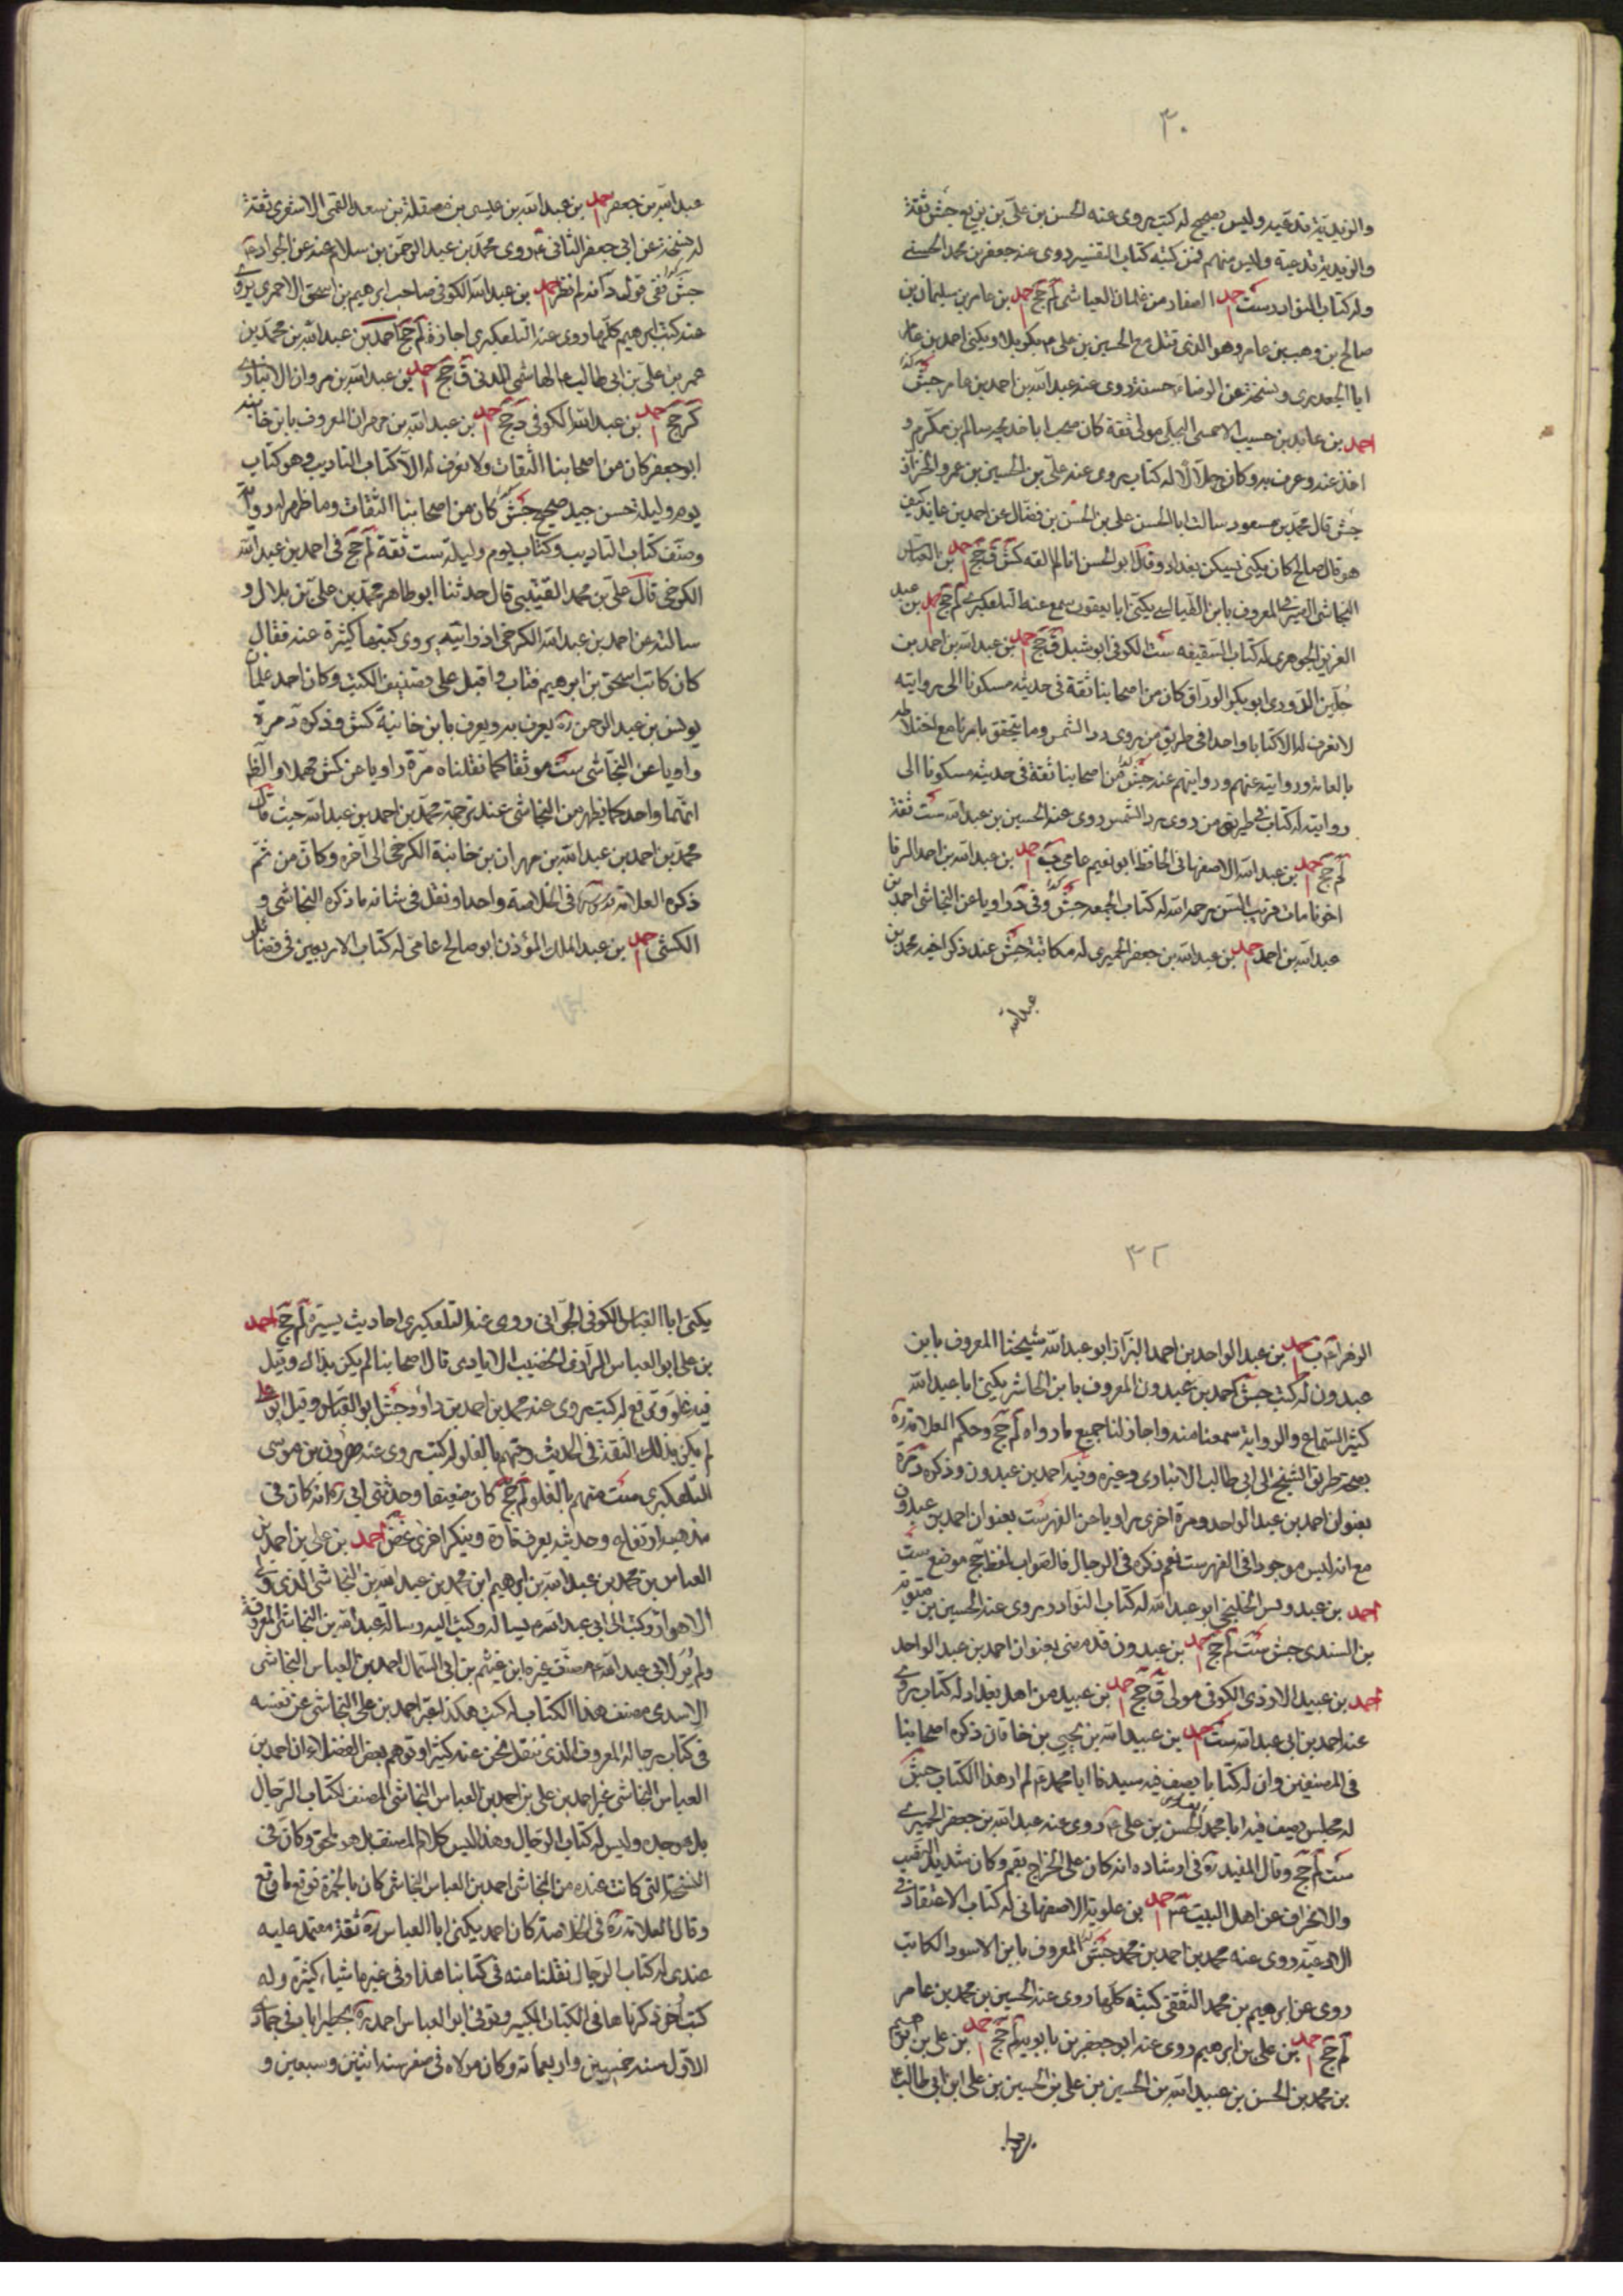 ٣٠
والزيدية تدعيه وليس بصحيح له كتب يروى عنه الحسن بن على بن بزيع جش ثقة
والزيدية تدعيه وليس منهم فمن كتبه كتاب التفسير روى عنه جعفر بن محمد الحسنى
وله كتاب النوادر ست احمد الصفار من غلمان العياشى لم جخ احمد بن عامر بن سليمان بن
صالح بن وهب بن عامر وهو الذى قتل مع الحسين بن على م بكربلا ويكنى احمد بن عامر
ابا الجعد يروى نسخة عن الرضاء حسنة روى عنه عبد الله بن احمد بن عامر جش
احمد بن عايذ بن حبيب الاحمسى البجلى مولى ثقة كان صحب ابا خديجه سالم بن مكرم و
اخذ عنه وعرف به وكان حلالا له كتاب يروى عنه على بن الحسين بن عمرو الخزاز
جش قال محمد بن مسعود سالت ابا الحسن على بن الحسن بن فضال عن احمد بن عايذ كيف
هو قال صالح كان يكنى يسكن بغداد وقال ابو الحسن انا لم القه كش ق جخ احمد بن العباس
النجاشى الصيرفى المعروف بابن الطيالسى يكنى ابا يعقوب سمع عنه التلعكبرى لم جخ احمد بن عبد
العزيز الجوهرى له كتاب السقيفه ست الكوفى ابو شبل ق جخ احمد بن عبد الله بن احمد بن
جلين الدورى ابو بكر الوراق كان من اصحابنا ثقة فى حديثه مسكونا الى روايته
لا نعرف له الا كتابا واحدا فى طريق من يروى رد الشمس وما يتحقق بامرنا مع اختلاطه
بالعامة وروايته عنهم وروايتهم عنه جش من اصحابنا ثقة فى حديثه مسكونا الى
روايته له كتاب فى طريق من روى رد الشمس روى عنه الحسين بن عبد الله ست ثقة
لم جخ احمد بن عبد الله الاصفهانى الحافظ ابو نعيم عامى ب احمد بن عبد الله بن احمد الرفا
اخونا مات قريب السن رحمه الله له كتاب الجمعه جش وفى د راويا عن النجاشى احمد بن
عبد الله بن احمد احمد بن عبد الله بن جعفر الحميرى له مكاتبة جش عند ذكر اخيه محمد بن
عبد الله
عبد الله بن جعفر احمد بن عبد الله بن عيسى بن مصقلة بن سعد القمى الاشعرى ثقة
له نسخة عن ابى جعفر الثانى ع روى محمد بن عبد الرحمن بن سلام عنه عن الجواد ع
جش ففى قول د انه لم نظر احمد بن عبد الله الكوفى صاحب ابرهيم بن اسحق الاحمرى يروى
عنه كتب ابرهيم كلها روى عنه التلعكبرى اجازة لم جخ احمد بن عبد الله بن محمد بن
عمر بن على بن ابى طالب ع الهاشمى المدنى ق جخ احمد بن عبد الله بن مروان الانبارى
كر جخ احمد بن عبد الله الكوفى د جخ احمد بن عبد الله بن مهران المعروف بابن خانبه
ابو جعفر كان من اصحابنا الثقات ولا نعرف له الا كتاب التاديب وهو كتاب
يوم وليلة حسن جيد صحيح جش كان من اصحابنا الثقات وما ظهر له رواية
وصنف كتاب التاديب وكتاب يوم وليلة ست ثقة لم جخ فى احمد بن عبد الله
الكرخى قال على بن محمد القتيبى قال حدثنا ابو طاهر محمد بن على بن بلال و
سالته عن احمد بن عبد الله الكرخى اذ رايته يروى كتبها كثيرة عنه فقال
كان كاتب اسحق بن ابرهيم فتاب واقبل على تصنيف الكتب وكان احد غلمان
يونس بن عبد الرحمن ره يعرف به ويعرف بابن خانبة كش وذكره د مرة
راويا عن النجاشى ست موثقا كما نقلناه مرة راويا عن كش مهملا والظ
انهما واحد كما يظهر من النجاشى عند ترجمة محمد بن احمد بن عبد الله حيث قال
محمد بن احمد بن عبد الله بن مهران بن خانبة الكرخى الى آخره وكان من ثم
ذكره العلامة قدس سره فى الخلاصة واحدا ونقل فى شانه ما ذكره النجاشى و
الكشى احمد بن عبد الملك المؤذن ابو صالح عامى له كتاب الاربعين فى فضائل
٣٢
الزهراء ع ب احمد بن عبد الواحد بن احمد البزاز ابو عبد الله شيخنا المعروف بابن
عبدون له كتب جش احمد بن عبدون المعروف بابن الحاشر يكنى ابا عبد الله
كثير السماع والرواية سمعنا منه واجاز لنا جميع ما رواه لم جخ وحكم العلامة ره
بصحة طريق الشيخ الى ابى طالب الانبارى وغيره وفيه احمد بن عبدون وذكره د مرة
بعنوان احمد بن عبد الواحد ومرة اخرى راويا عن الفهرست بعنوان احمد بن عبدون
مع انه ليس موجودا فى الفهرست نعم ذكره فى الرجال فالصواب لفظ جخ موضع ست
احمد بن عبدوس الخلنجى ابو عبد الله له كتاب النوادر يروى عنه الحسين بن متويه
بن السندى جش ست لم جخ احمد بن عبدون قد مضى بعنوان احمد بن عبد الواحد
احمد بن عبيد الازدى الكوفى مولى ق جخ احمد بن عبيد من اهل بغداد له كتاب يروى
عنه احمد بن ابى عبد الله ست احمد بن عبيد الله بن يحيى بن خاقان ذكره اصحابنا
فى المصنفين وان له كتابا يصف فيه سيدنا ابا محمد ع لم ار هذا الكتاب جش
له مجلس يصف فيه ابا محمد الحسن بن على ع روى عنه عبد الله بن جعفر الحميرى
ست لم جخ وقال المفيد ره فى ارشاده انه كان على الخراج بقم وكان شديد النصب
والانحراف عن اهل البيت ع احمد بن علوية الاصفهانى له كتاب الاعتقاد فى
الادعية روى عنه محمد بن احمد بن محمد جش المعروف بابن الاسود الكاتب
روى عن ابرهيم بن محمد الثقفى كتبه كلها روى عنه الحسين بن محمد بن عامر
لم جخ احمد بن على بن ابرهيم روى عنه ابو جعفر بن بابويه لم جخ احمد بن على بن ابرهيم
بن محمد بن الحسن بن عبيد الله بن الحسين بن على بن الحسين بن على ابن ابى طالب ع
يكنى ابا العباس الكوفى الجوانى روى عنه التلعكبرى احاديث يسيرة لم جخ احمد
بن على ابو العباس الرازى الخضيب الايادى قال اصحابنا لم يكن بذاك وقيل
فيه غلو وترفع له كتب يروى عنه محمد بن احمد بن داود جش ابو العباس وقيل ابو على
لم يكن بذلك الثقة فى الحديث ومتهم بالغلو له كتب يروى عنه هرون بن موسى
التلعكبرى ست متهم بالغلو لم جخ كان ضعيفا وحدثنى ابى ره انه كان فى
مذهبه ارتفاع وحديثه يعرف تارة وينكر اخرى غض احمد بن على بن احمد بن
العباس بن محمد بن عبد الله بن ابرهيم ابن محمد بن عبد الله بن النجاشى الذى ولى
الاهواز وكتب الى ابى عبد الله م يساله وكتب اليه رسالة عبد الله بن النجاشى المعروفة
ولم ير لابى عبد الله ع مصنف غيره ابن غيثم بن ابى السمال احمد بن العباس النجاشى
الاسدى مصنف هذا الكتاب له كتب هكذا عبر احمد بن على النجاشى عن نفسه
فى كتاب رجاله المعروف الذى ننقل نحن عنه كثيرا وتوهم بعض الفضلاء ان احمد بن
العباس النجاشى غير احمد بن على بن احمد بن العباس النجاشى المصنف لكتاب الرجال
بل هو جده وليس له كتاب الرجال وهذا ليس كلام المصنف بل هو ملحق وكان فى
النسخة التى كانت عنده من النجاشى احمد بن العباس النجاشى كان بالحمرة فوقع ما وقع
وقال العلامة ره فى الخلاصة كان احمد يكنى ابا العباس ره ثقة معتمد عليه
عندى له كتاب الرجال نقلنا منه فى كتابنا هذا وفى غيره اشياء كثيرة وله
كتب اخر ذكرناها فى الكتاب الكبير وتوفى ابو العباس احمد ره بمطيراباد فى جمادى
الاول سنة خمسين واربعمائه وكان مولده فى صفر سنة اثنتين وسبعين و